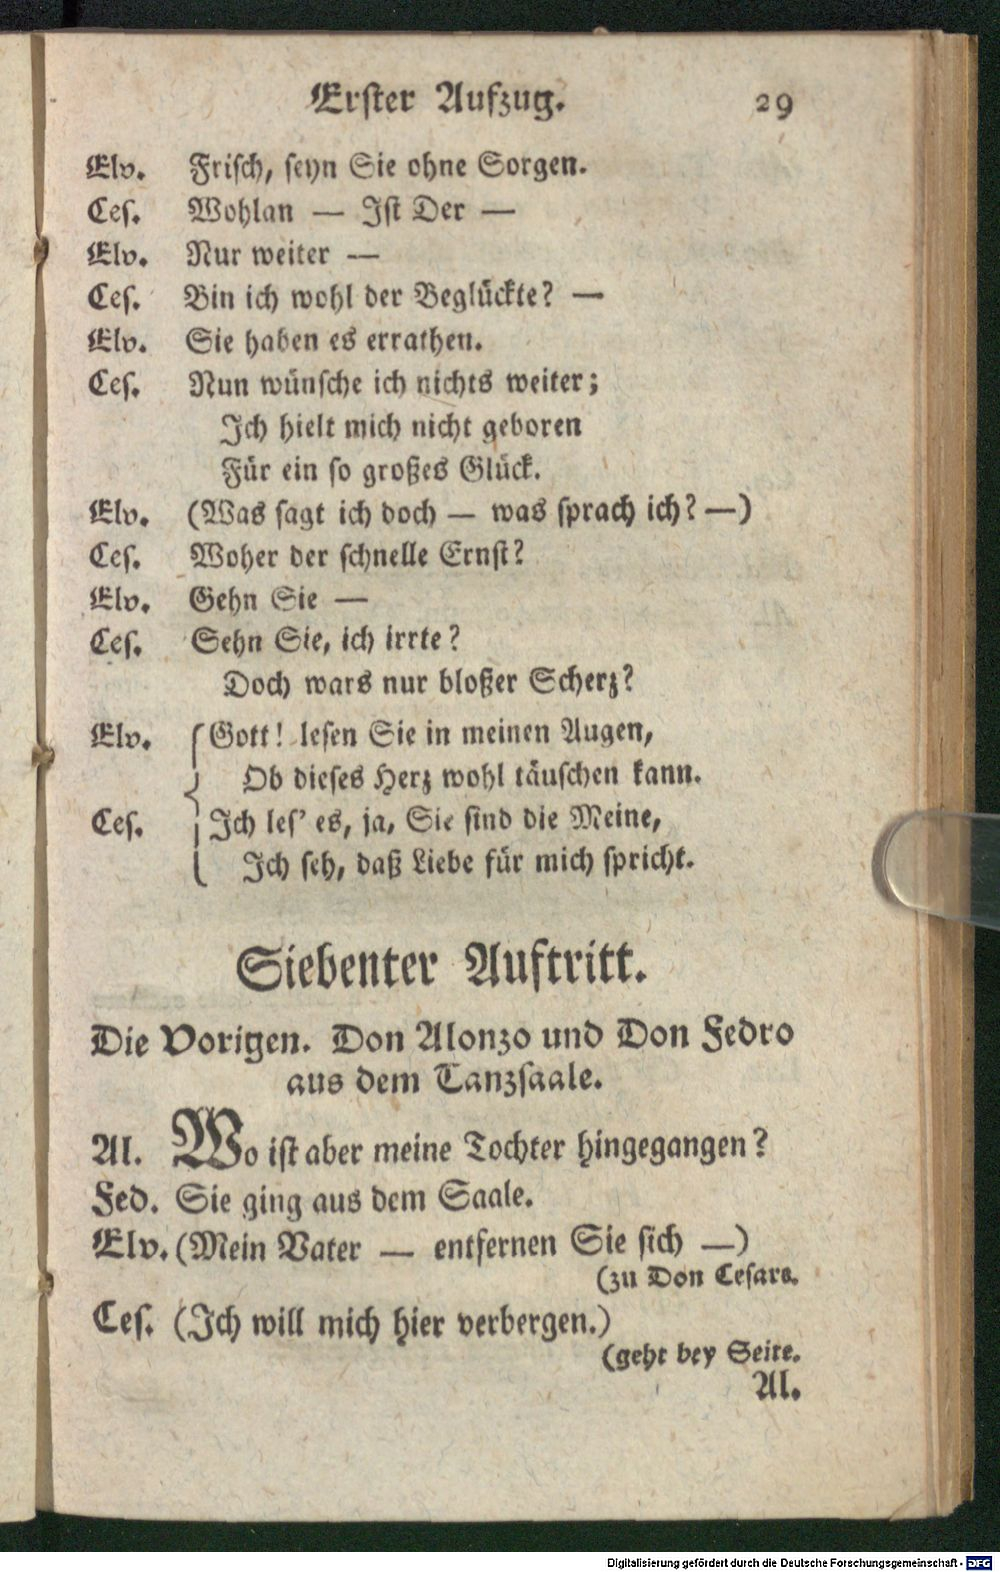 Erster Aufzug. 29
Elv. Frisch, seyn Sie ohne Sorgen.
Ces. Wohlan — Ist Der —
Elv. Nur weiter —
Ces. Bin ich wohl der Beglückte? —
Elv. Sie haben es errathen.
Ces. Nun wünsche ich nichts weiter;
Ich hielt mich nicht geboren
Für ein so großes Glück.
Elv. (Was sagt ich doch — was sprach ich? —)
Ces. Woher der schnelle Ernst?
Elv. Gehn Sie —
Ces. Sehn Sie, ich irrte?
Doch wars nur bloßer Scherz?
Elv. Gott! lesen Sie in meinen Augen,
Ob dieses Herz wohl täuschen kann.
Ces. Ich les' es, ja, Sie sind die Meine,
Ich seh, daß Liebe für mich spricht.
Siebenter Auftritt.
Die Vorigen. Don Alonzo und Don Fedro
aus dem Tanzsaale.
Al. Wo ist aber meine Tochter hingegangen?
Fed. Sie ging aus dem Saale.
Elv. (Mein Vater — entfernen Sie sich —)
(zu Don Cesaro.
Ces. (Ich will mich hier verbergen.)
(geht bey Seite.
Al.
Digitalisierung gefördert durch die Deutsche Forschungsgemeinschaft - DFG